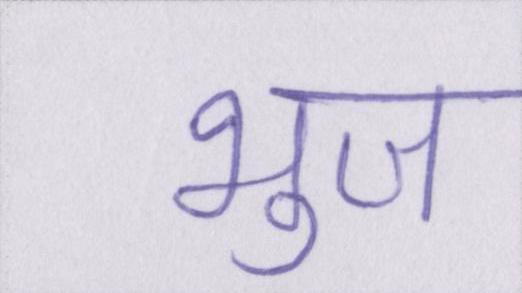 भुज